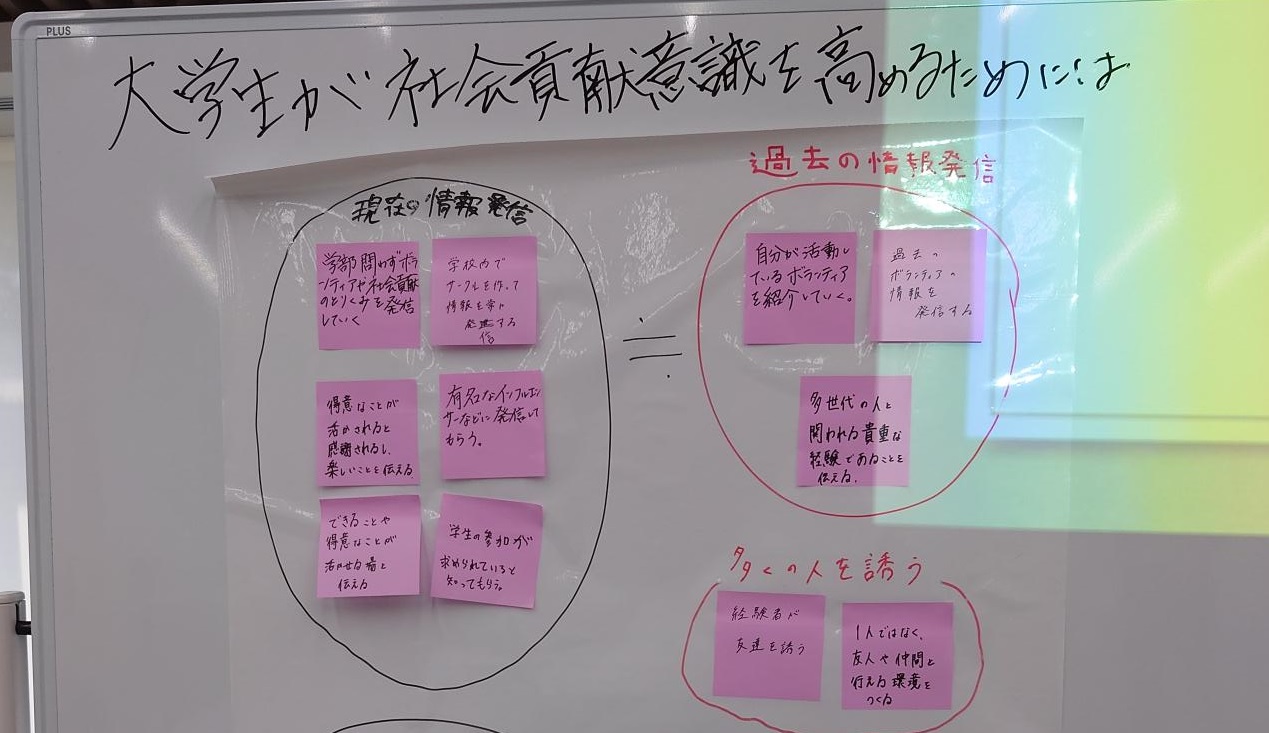 PLUS
大学生が社会貢献意識を高めるためには
現在の情報発信
学部問わずボラ
ンティアや社会貢献
のとりくみを発信
していく
学校内で
サークルを作って
情報を常に
発信する
得意なことが
活かされると
感謝されるし、
楽しいことを伝える
有名なインフルエン
サーなどに発信して
もらう。
できることや
得意なことが
活かせる場と
伝える
学生の参加が
求められていると
知ってもらう。
≒
過去の情報発信
自分が活動し
ているボランティア
を紹介していく。
過去の
ボランティアの
情報を
発信する
多世代の人と
関われる貴重な
経験であることを
伝える.
多くの人を誘う
経験者が
友達を誘う
1人ではなく、
友人や仲間と
行える環境を
つくる